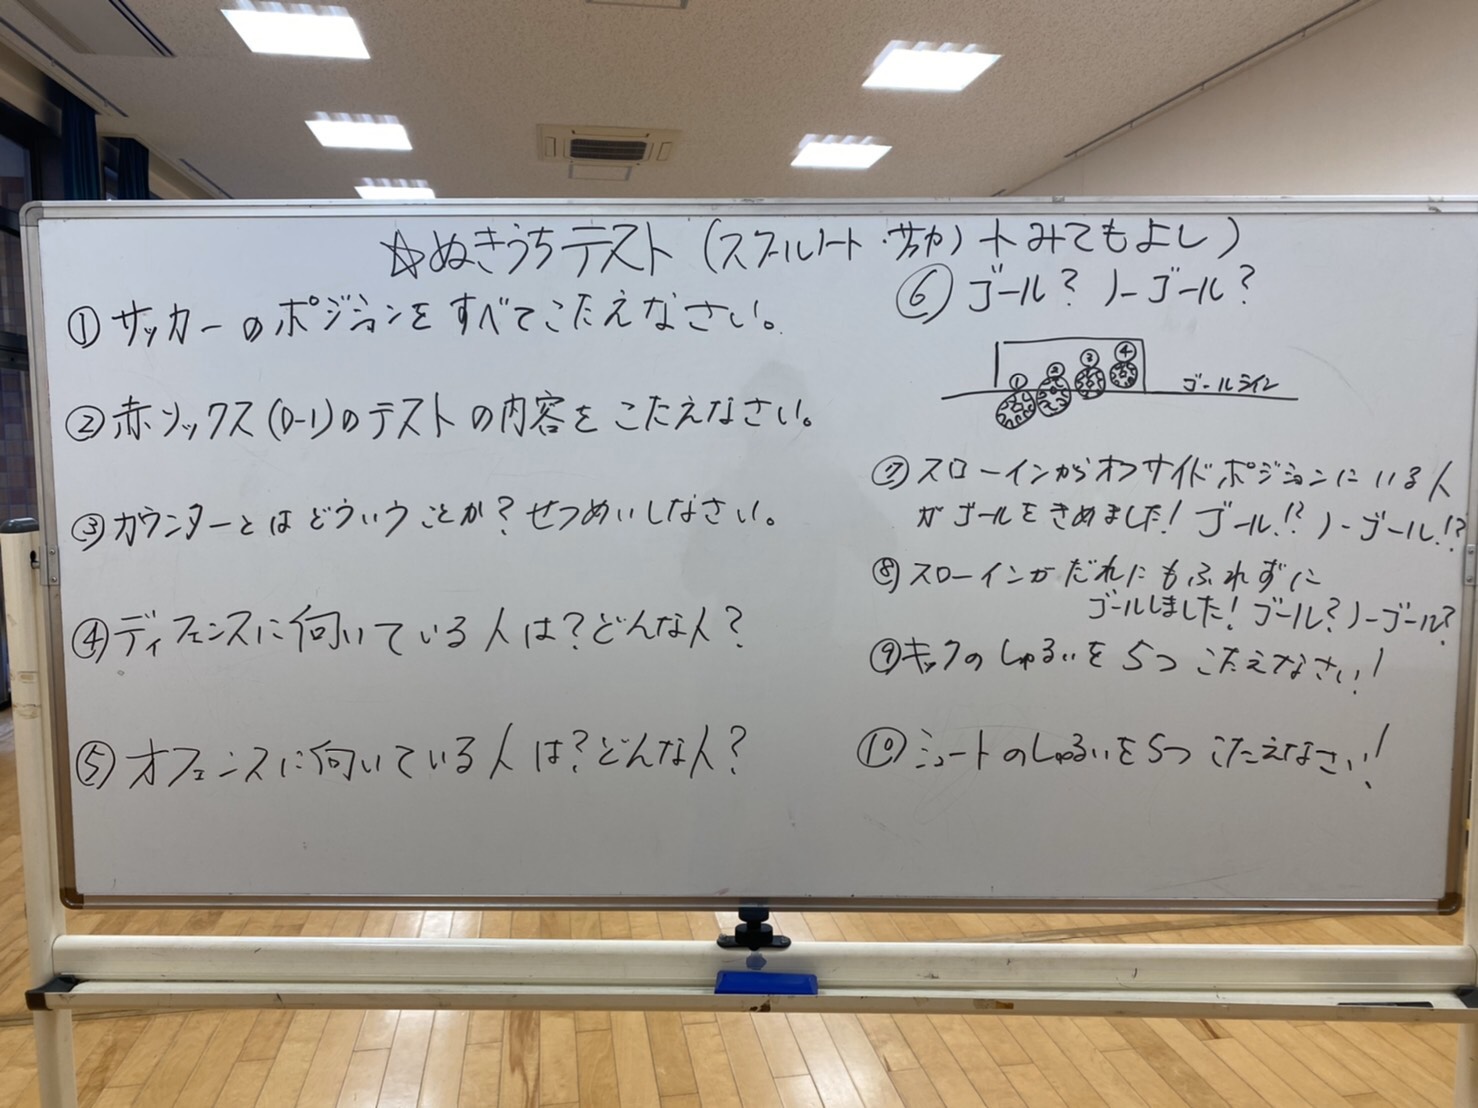 ☆ぬきうちテスト(スクールノート・サッカーノートみてもよし)
①サッカーのポジションをすべてこたえなさい。
②赤ソックス(0-1)のテストの内容をこたえなさい。
③カウンターとはどういうことか?せつめいしなさい。
④ディフェンスに向いている人は?どんな人?
⑤オフェンスに向いている人は?どんな人?
⑥ゴール?ノーゴール?
① ② ③ ④
ゴールライン
⑦スローインからオフサイドポジションにいる人
がゴールをきめました!ゴール!?ノーゴール!?
⑧スローインがだれにもふれずに
ゴールしました!ゴール?ノーゴール?
⑨キックのしゅるいを5つこたえなさい!
⑩シュートのしゅるいを5つこたえなさい!